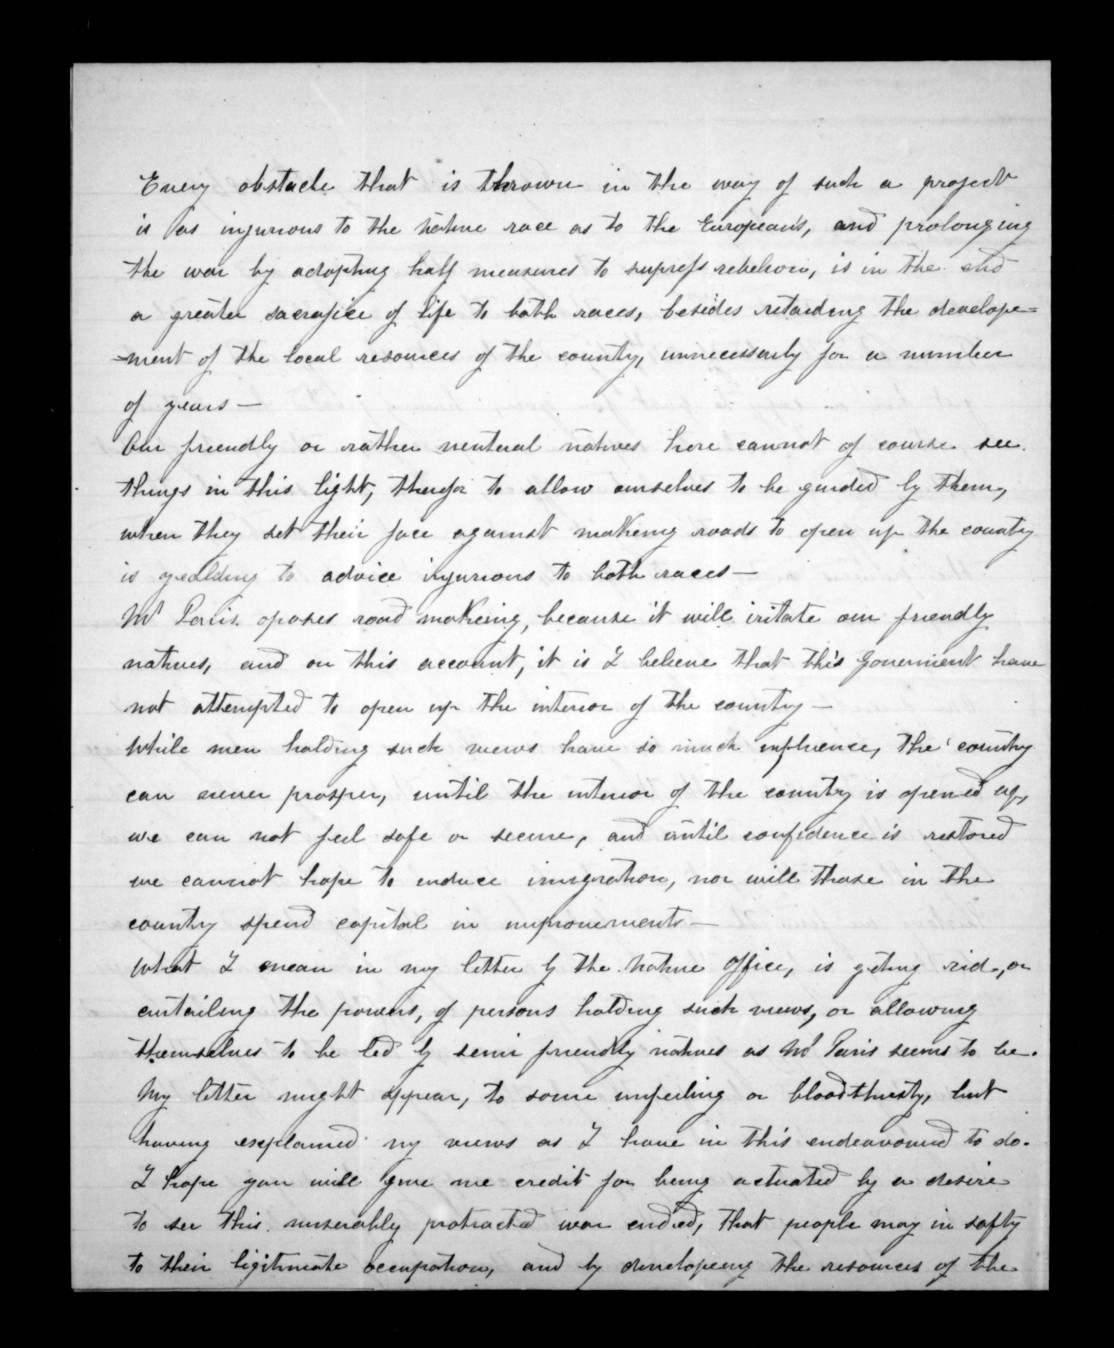 Every obstacle that is thrown in the way of such a project
is as injurious to the Native race as to the Europeans, and prolonging
the war by adopting half measures to supress rebelion, is in the end
a greater sacrafice of life to both races, besides retarding the develope=
=ment of the local resources of the county, unnecessarily for a number
of years—
Our friendly or rather neutural natives here cannot of course see
things in this light, therefor to allow ourselves to be guided by them,
when they set their face against makeing roads to open up the county
is yealding to advice injurious to both races—
Mr Paris oposes road makeing, because it will iritate our friendly
natives, and on this account, it is I believe that this Goverment have
not attempted to open up the interior of the country—
While men holding such views have so much influence, the country
can never prosper, until the interior of the country is opened up,
we can not feel safe or secure, and until confidence is restored
we cannot hope to induce imigration, nor will those in the
country spend capital in improvements—
What I mean in my letter by the Native Office, is geting rid, or
curtailing the powers, of persons holding such views, or allowing
themselves to be led by semi friendly natives as Mr Paris seems to be.
My letter might appear, to some unfeeling or bloodthirsty, but
having explained my views as I have in this endeavoured to do.
I hope you will give me credit for being actuated by a desire
to see this miserably protracted war ended, that people may in safty
to their legitimate occupation, and by developeing the resources of the